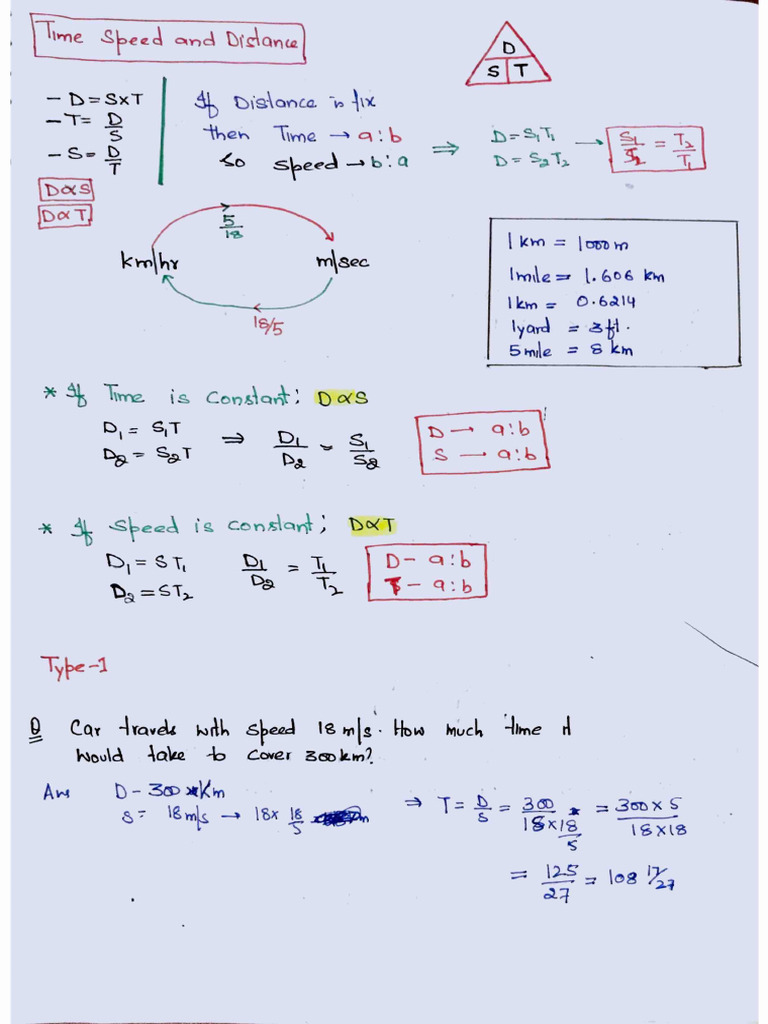 Time Speed and Distance
D
S T
- D = S×T
- T = D/S
- S = D/T
D∝S
D∝T
If Distance is fix
then Time → a:b
So Speed → b:a
⇒ D = S₁T₁
D = S₂T₂
→ S₁/S₂ = T₂/T₁
5/18
km/hr m/sec
18/5
1 km = 1000 m
1 mile = 1.606 km
1 km = 0.6214
1 yard = 3 ft.
5 mile = 8 km
* If Time is constant; D∝S
D₁ = S₁T ⇒ D₁/D₂ = S₁/S₂
D₂ = S₂T
D → a:b
S → a:b
* If Speed is constant; D∝T
D₁ = ST₁ D₁/D₂ = T₁/T₂
D₂ = ST₂
D - a:b
T - a:b
Type-1
Q Car travels with speed 18 m/s. How much time it
would take to cover 300 km?
Ans D - 300 Km
S = 18 m/s → 18 × 18/5
⇒ T = D/S = 300/(18×18/5) = 300×5/18×18
= 125/27 = 108 17/27